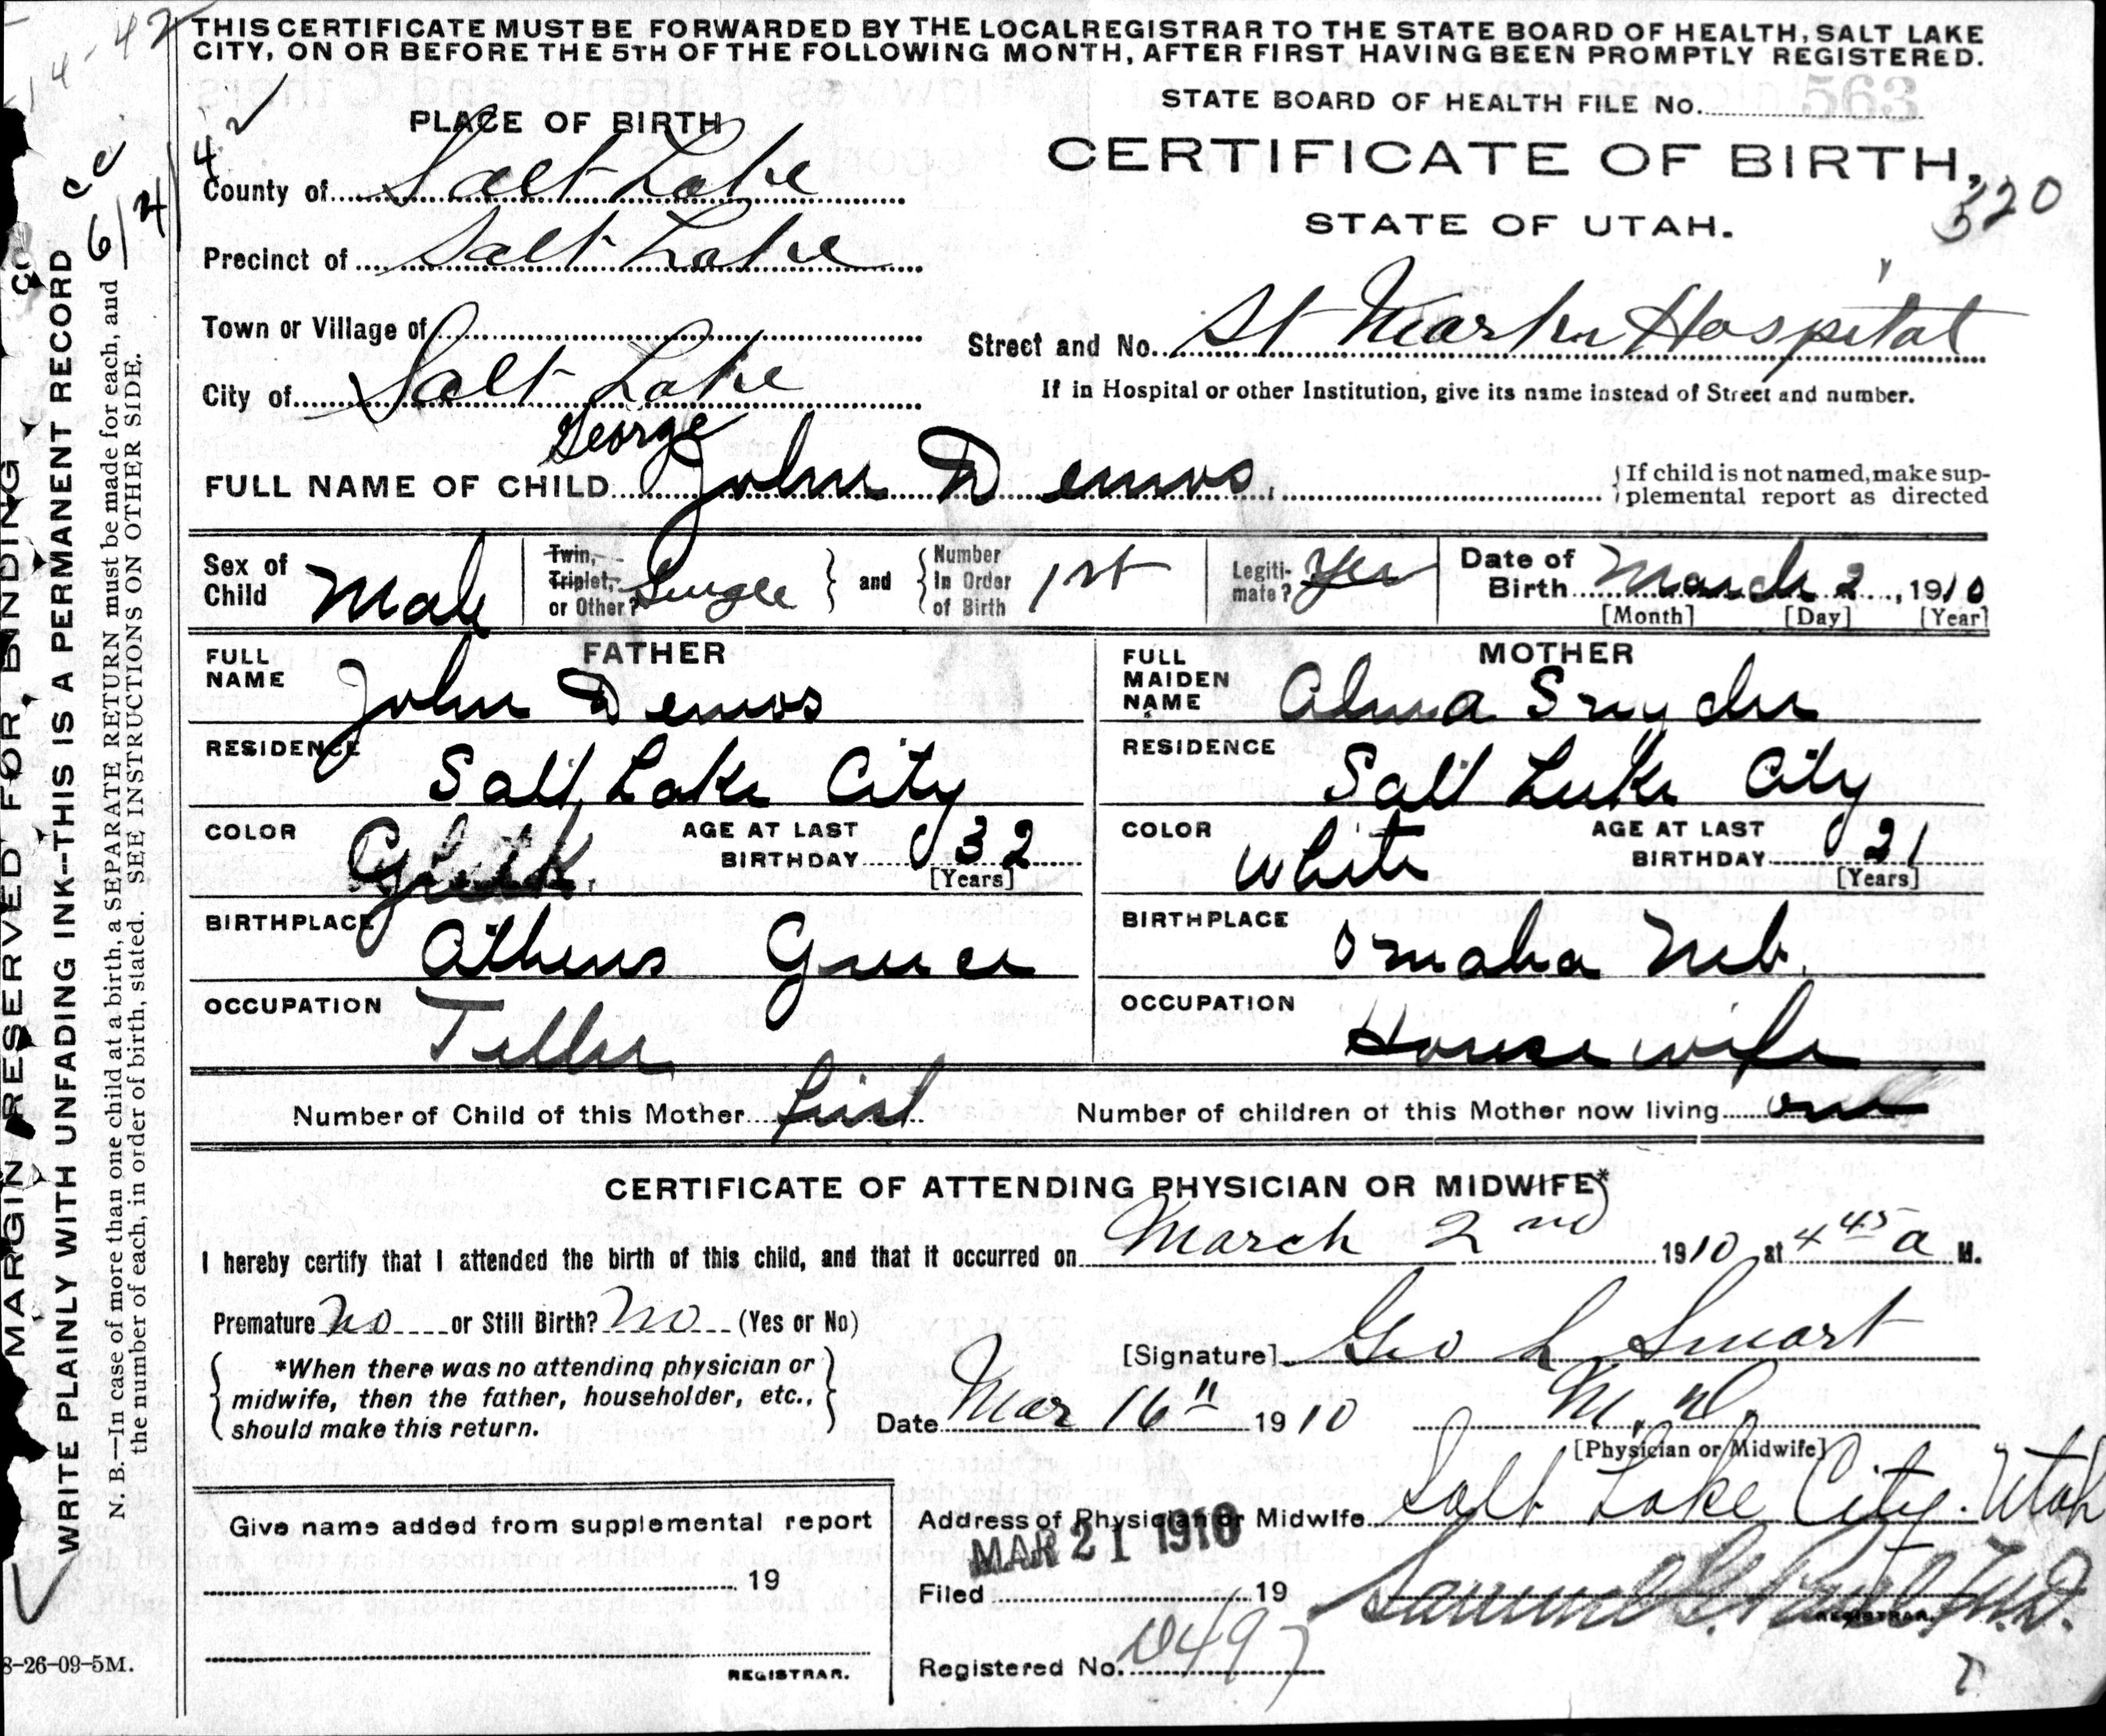 THIS CERTIFICATE MUST BE FORWARDED BY THE LOCAL REGISTRAR TO THE STATE BOARD OF HEALTH, SALT LAKE
CITY, ON OR BEFORE THE 5TH OF THE FOLLOWING MONTH, AFTER FIRST HAVING BEEN PROMPTLY REGISTERED.
STATE BOARD OF HEALTH FILE No. 563
PLACE OF BIRTH
CERTIFICATE OF BIRTH,
320
STATE OF UTAH.
County of Salt Lake
Precinct of Salt Lake
Town or Village of
Street and No. St Marks Hospital
City of Salt Lake
If in Hospital or other Institution, give its name instead of Street and number.
George
FULL NAME OF CHILD John Demos
If child is not named, make sup-
plemental report as directed
Sex of Child Male
Twin, Triplet, or Other? Single and Number In Order of Birth 1st
Legiti-mate? Yes
Date of Birth March 2, 1910
[Month] [Day] [Year]
FATHER
FULL NAME John Demos
RESIDENCE Salt Lake City
COLOR Greek
AGE AT LAST BIRTHDAY 32
[Years]
BIRTHPLACE Athens Greece
OCCUPATION Teller
MOTHER
FULL MAIDEN NAME Alma Snyder
RESIDENCE Salt Lake City
COLOR White
AGE AT LAST BIRTHDAY 21
[Years]
BIRTHPLACE Omaha Neb.
OCCUPATION House wife
Number of Child of this Mother First
Number of children of this Mother now living one
CERTIFICATE OF ATTENDING PHYSICIAN OR MIDWIFE*
I hereby certify that I attended the birth of this child, and that it occurred on March 2nd 1910 at 4 45 a M.
Premature no or Still Birth? no (Yes or No)
*When there was no attending physician or
midwife, then the father, householder, etc.,
should make this return.
[Signature] Geo L Smart
Date Mar 16" 1910 M.D.
[Physician or Midwife]
Give name added from supplemental report
19
REGISTRAR.
Address of Physician or Midwife Salt Lake City. Utah
MAR 21 1910
Filed 19 Samuel G. M.D.
REGISTRAR.
Registered No. 497
MARGIN RESERVED FOR BINDING
WRITE PLAINLY WITH UNFADING INK—THIS IS A PERMANENT RECORD
N. B.—In case of more than one child at a birth, a SEPARATE RETURN must be made for each, and
the number of each, in order of birth, stated. SEE INSTRUCTIONS ON OTHER SIDE.
8-26-09-5M.